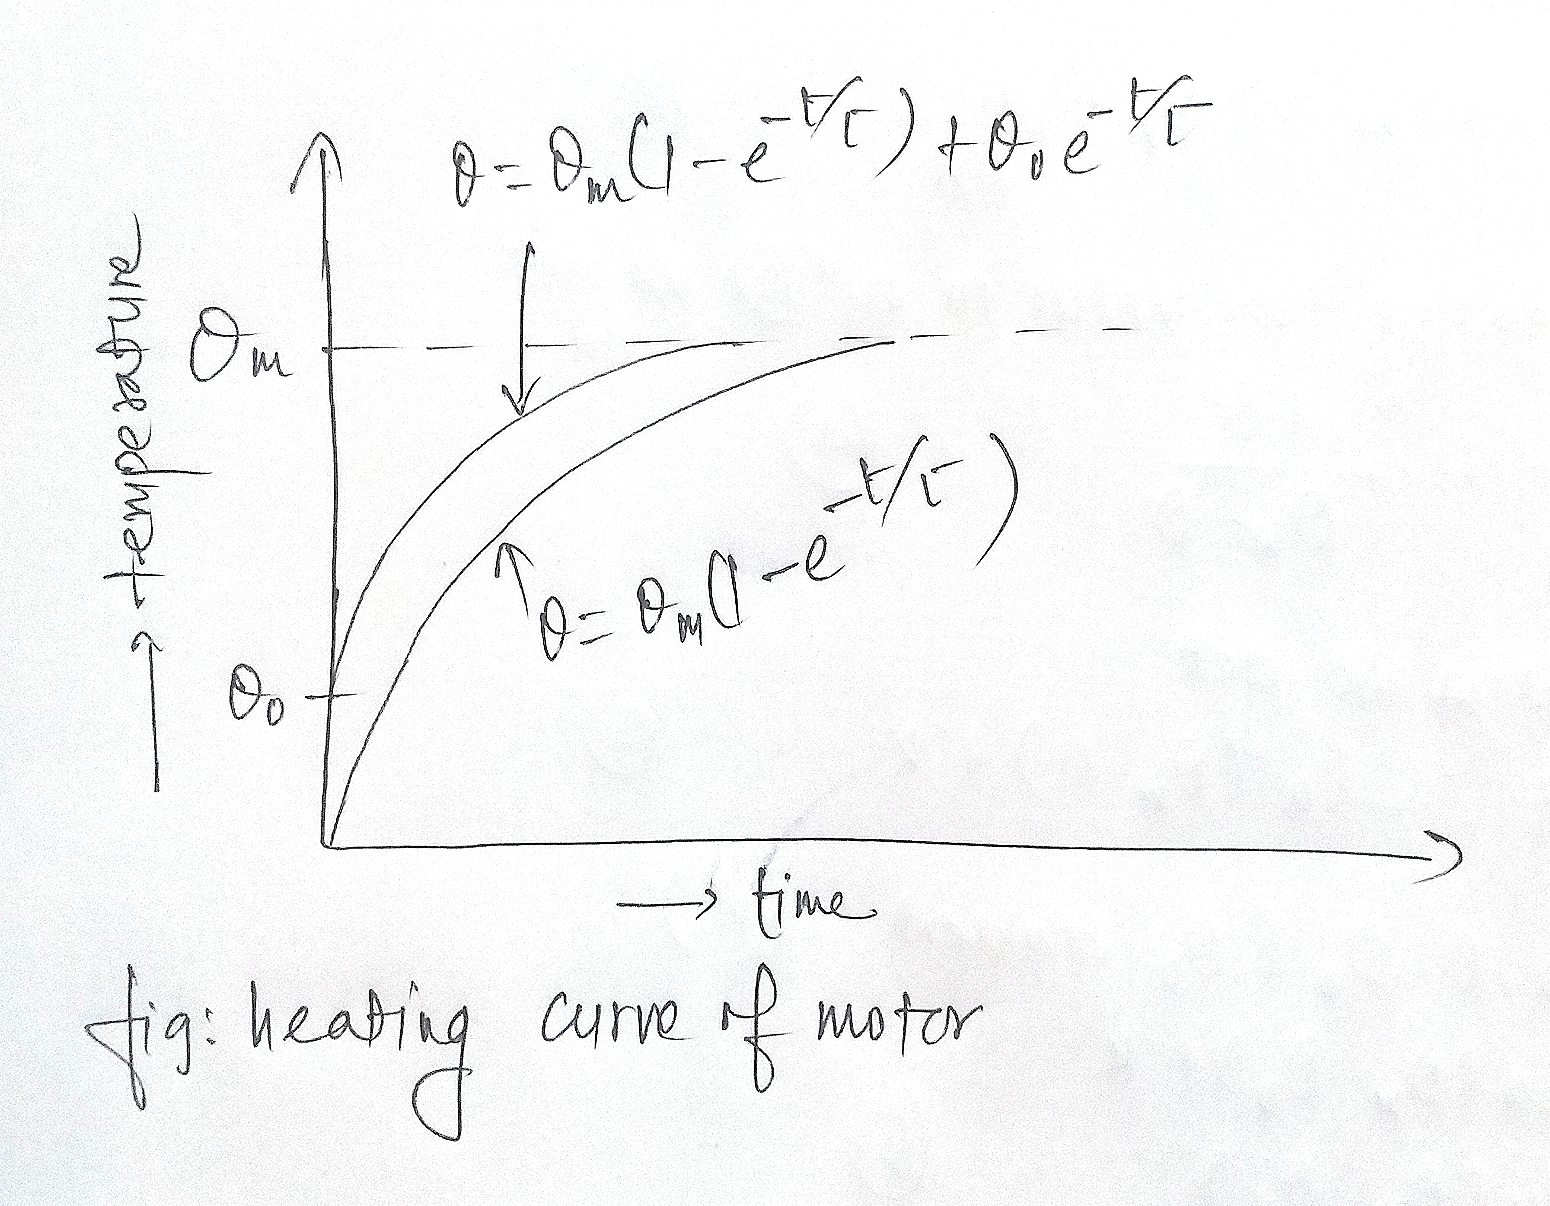 θ = θm(1 - e^-t/τ) + θ0 e^-t/τ
θm
temperature
θ = θm(1 - e^-t/τ)
θ0
→ time
fig: heating curve of motor